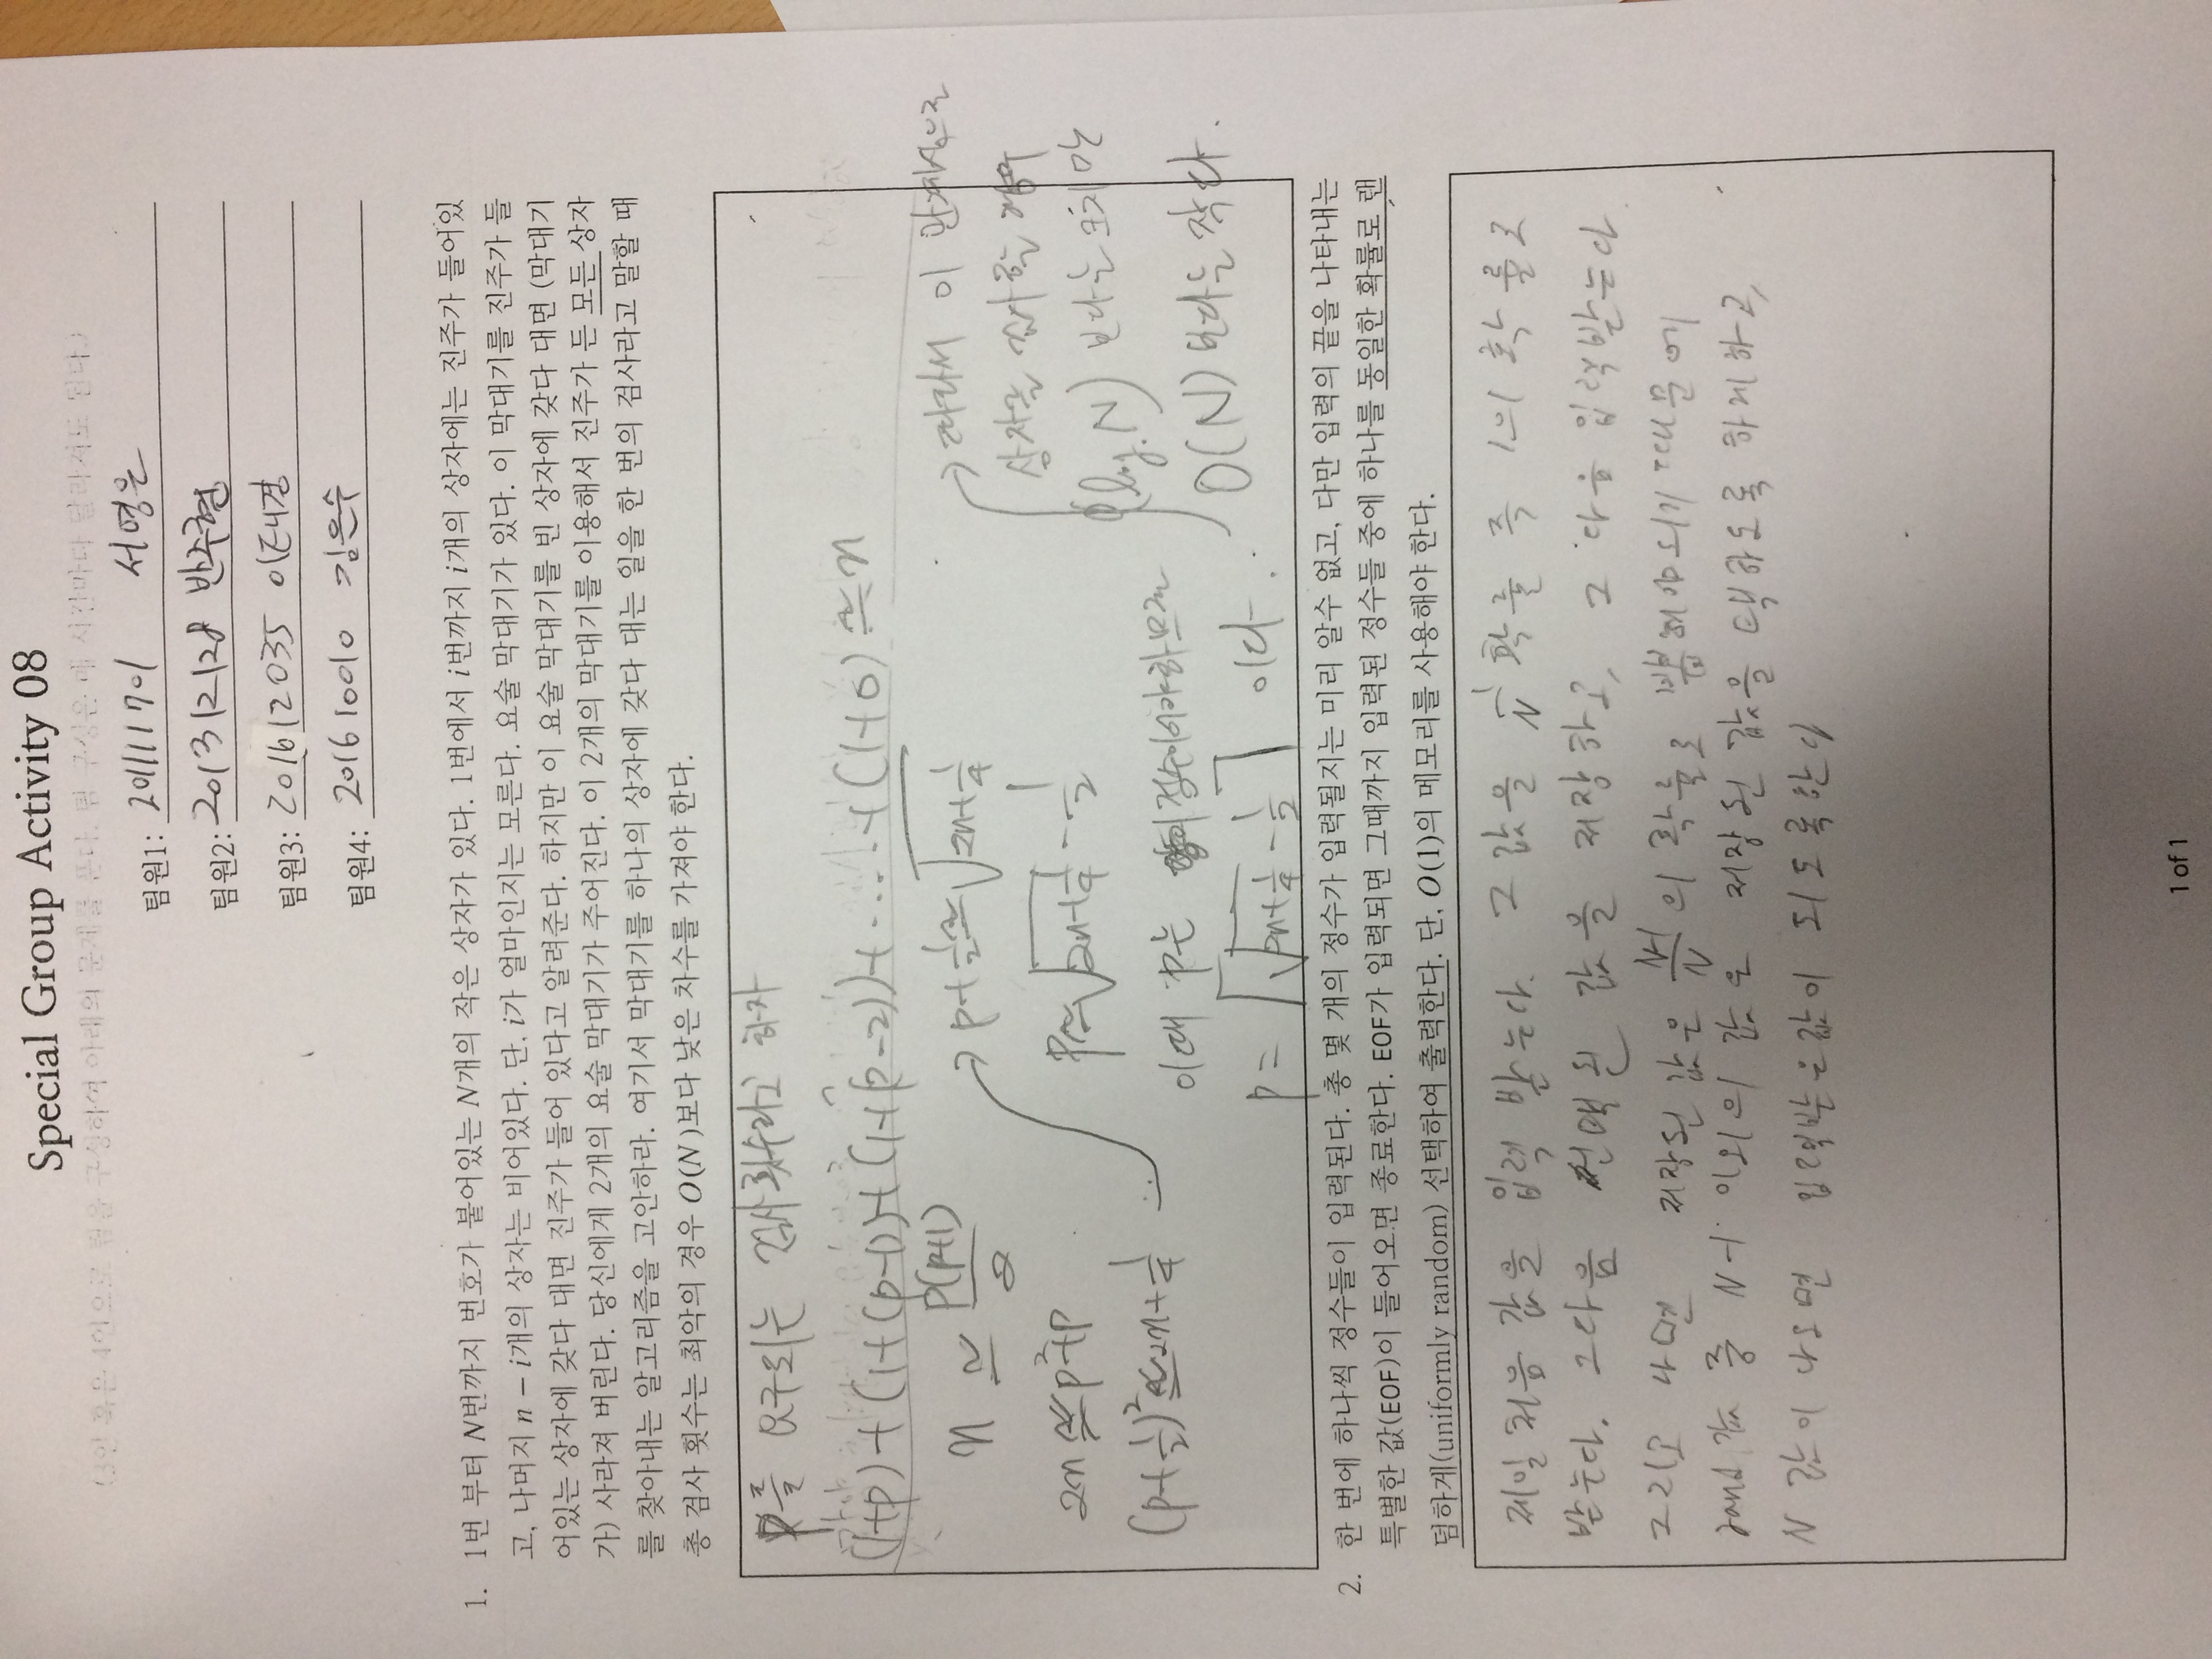 Special Group Activity 08
(3인 혹은 4인으로 팀을 구성하여 아래의 문제를 푼다. 팀 구성은 매 시간마다 달라져도 된다.)
팀원1: 20111701 서영은
팀원2: 201312128 반주현
팀원3: 201612035 이태경
팀원4: 201610010 김은수
1. 1번 부터 N번까지 번호가 붙어있는 N개의 작은 상자가 있다. 1번에서 i번까지 i개의 상자에는 진주가 들어있
고, 나머지 n – i개의 상자는 비어있다. 단, i가 얼마인지는 모른다. 요술 막대기가 있다. 이 막대기를 진주가 들
어있는 상자에 갖다 대면 진주가 들어 있다고 알려준다. 하지만 이 요술 막대기를 빈 상자에 갖다 대면 (막대기
가) 사라져 버린다. 당신에게 2개의 요술 막대기가 주어진다. 이 2개의 막대기를 이용해서 진주가 든 모든 상자
를 찾아내는 알고리즘을 고안하라. 여기서 막대기를 하나의 상자에 갖다 대는 일을 한 번의 검사라고 말할 때
총 검사 횟수는 최악의 경우 O(N)보다 낮은 차수를 가져야 한다.
p를 요구되는 검사횟수라고 하자
(1+p) + (1+(p-1)) + (1+(p-2)) + ..... + (1+0) ≃ n
n ≃ p(p+1)/2
2n ≃ p²+p
(p+1/2)² ≃ 2n+1/4
→ p+1/2 ≃ √(2n+1/4)
p ≃ √(2n+1/4) - 1/2
이때 p는 정수이어야하므로
p = ⌈√(2n+1/4) - 1/2⌉ 이다.
→ 따라서 이 관계식으로
상자를 검사할 경우
(log N) 보다는 크지만
O(N) 보다는 작다.
2. 한 번에 하나씩 정수들이 입력된다. 총 몇 개의 정수가 입력될지는 미리 알수 없고, 다만 입력의 끝을 나타내는
특별한 값(EOF)이 들어오면 종료한다. EOF가 입력되면 그때까지 입력된 정수들 중에 하나를 동일한 확률로 랜
덤하게(uniformly random) 선택하여 출력한다. 단, O(1)의 메모리를 사용해야 한다.
제일 처음 값을 입력 받는다. 그 값을 1/N 확률 즉 1의 확률로
받는다. 그다음 선택된 값을 저장하고, 그 다음 입력받는다
그리고 나면 저장된 값은 N-1/N 의 확률로 뽑혀야되기 때문에
rand 값 중 N-1 이외의 값은 저장된 값을 택하도록 하게하고,
N 값이 나오면 입력받은값이 되도록한다
1 of 1